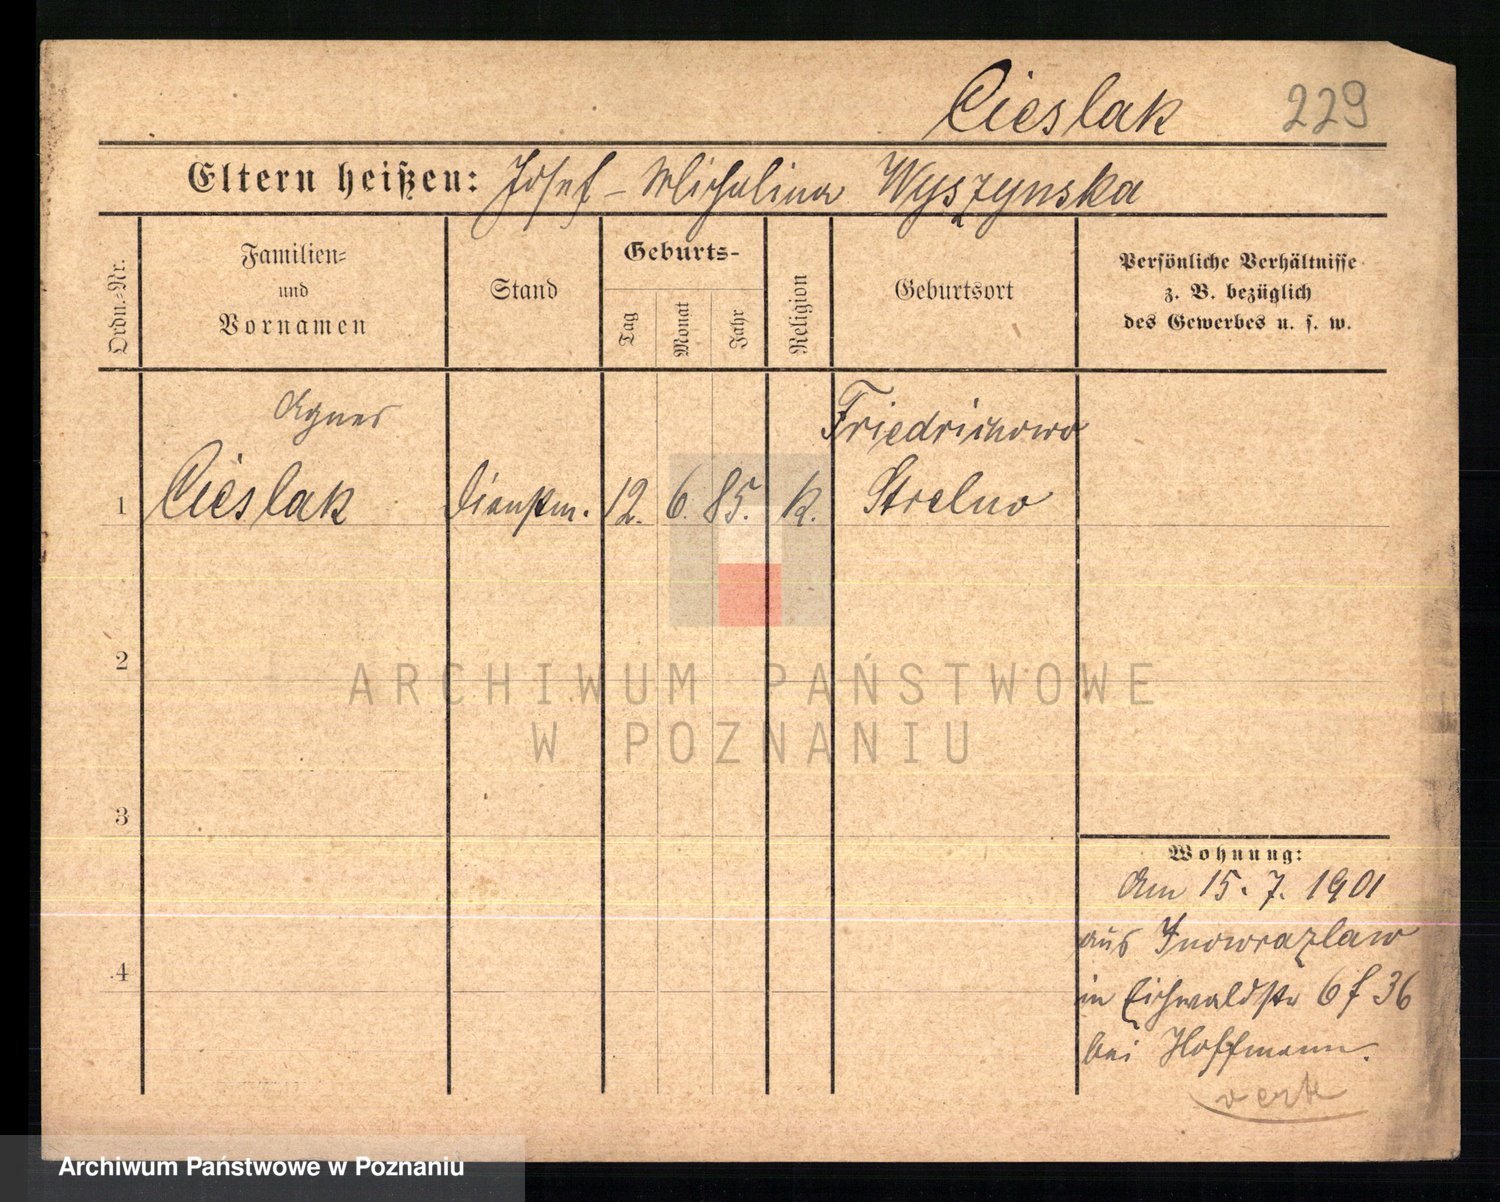 Cieslak 229
Eltern heißen: Josef - Michalina Wyszynska
Ordn.-Nr.
Familien-
und
Vornamen
Stand
Geburts-
Tag
Monat
Jahr
Religion
Geburtsort
Persönliche Verhältnisse
z. B. bezüglich
des Gewerbes u. s. w.
Agnes
Friedrichowo
1 Cieślak Dienstm. 12. 6. 85. k. Strelno
2
ARCHIWUM PAŃSTWOWE
W POZNANIU
3
Wohnung:
Am 15. 7. 1901
aus Inowrazlaw
4
in Eichwaldstr 6 f 36
bei Hoffmann.
Archiwum Państwowe w Poznaniu